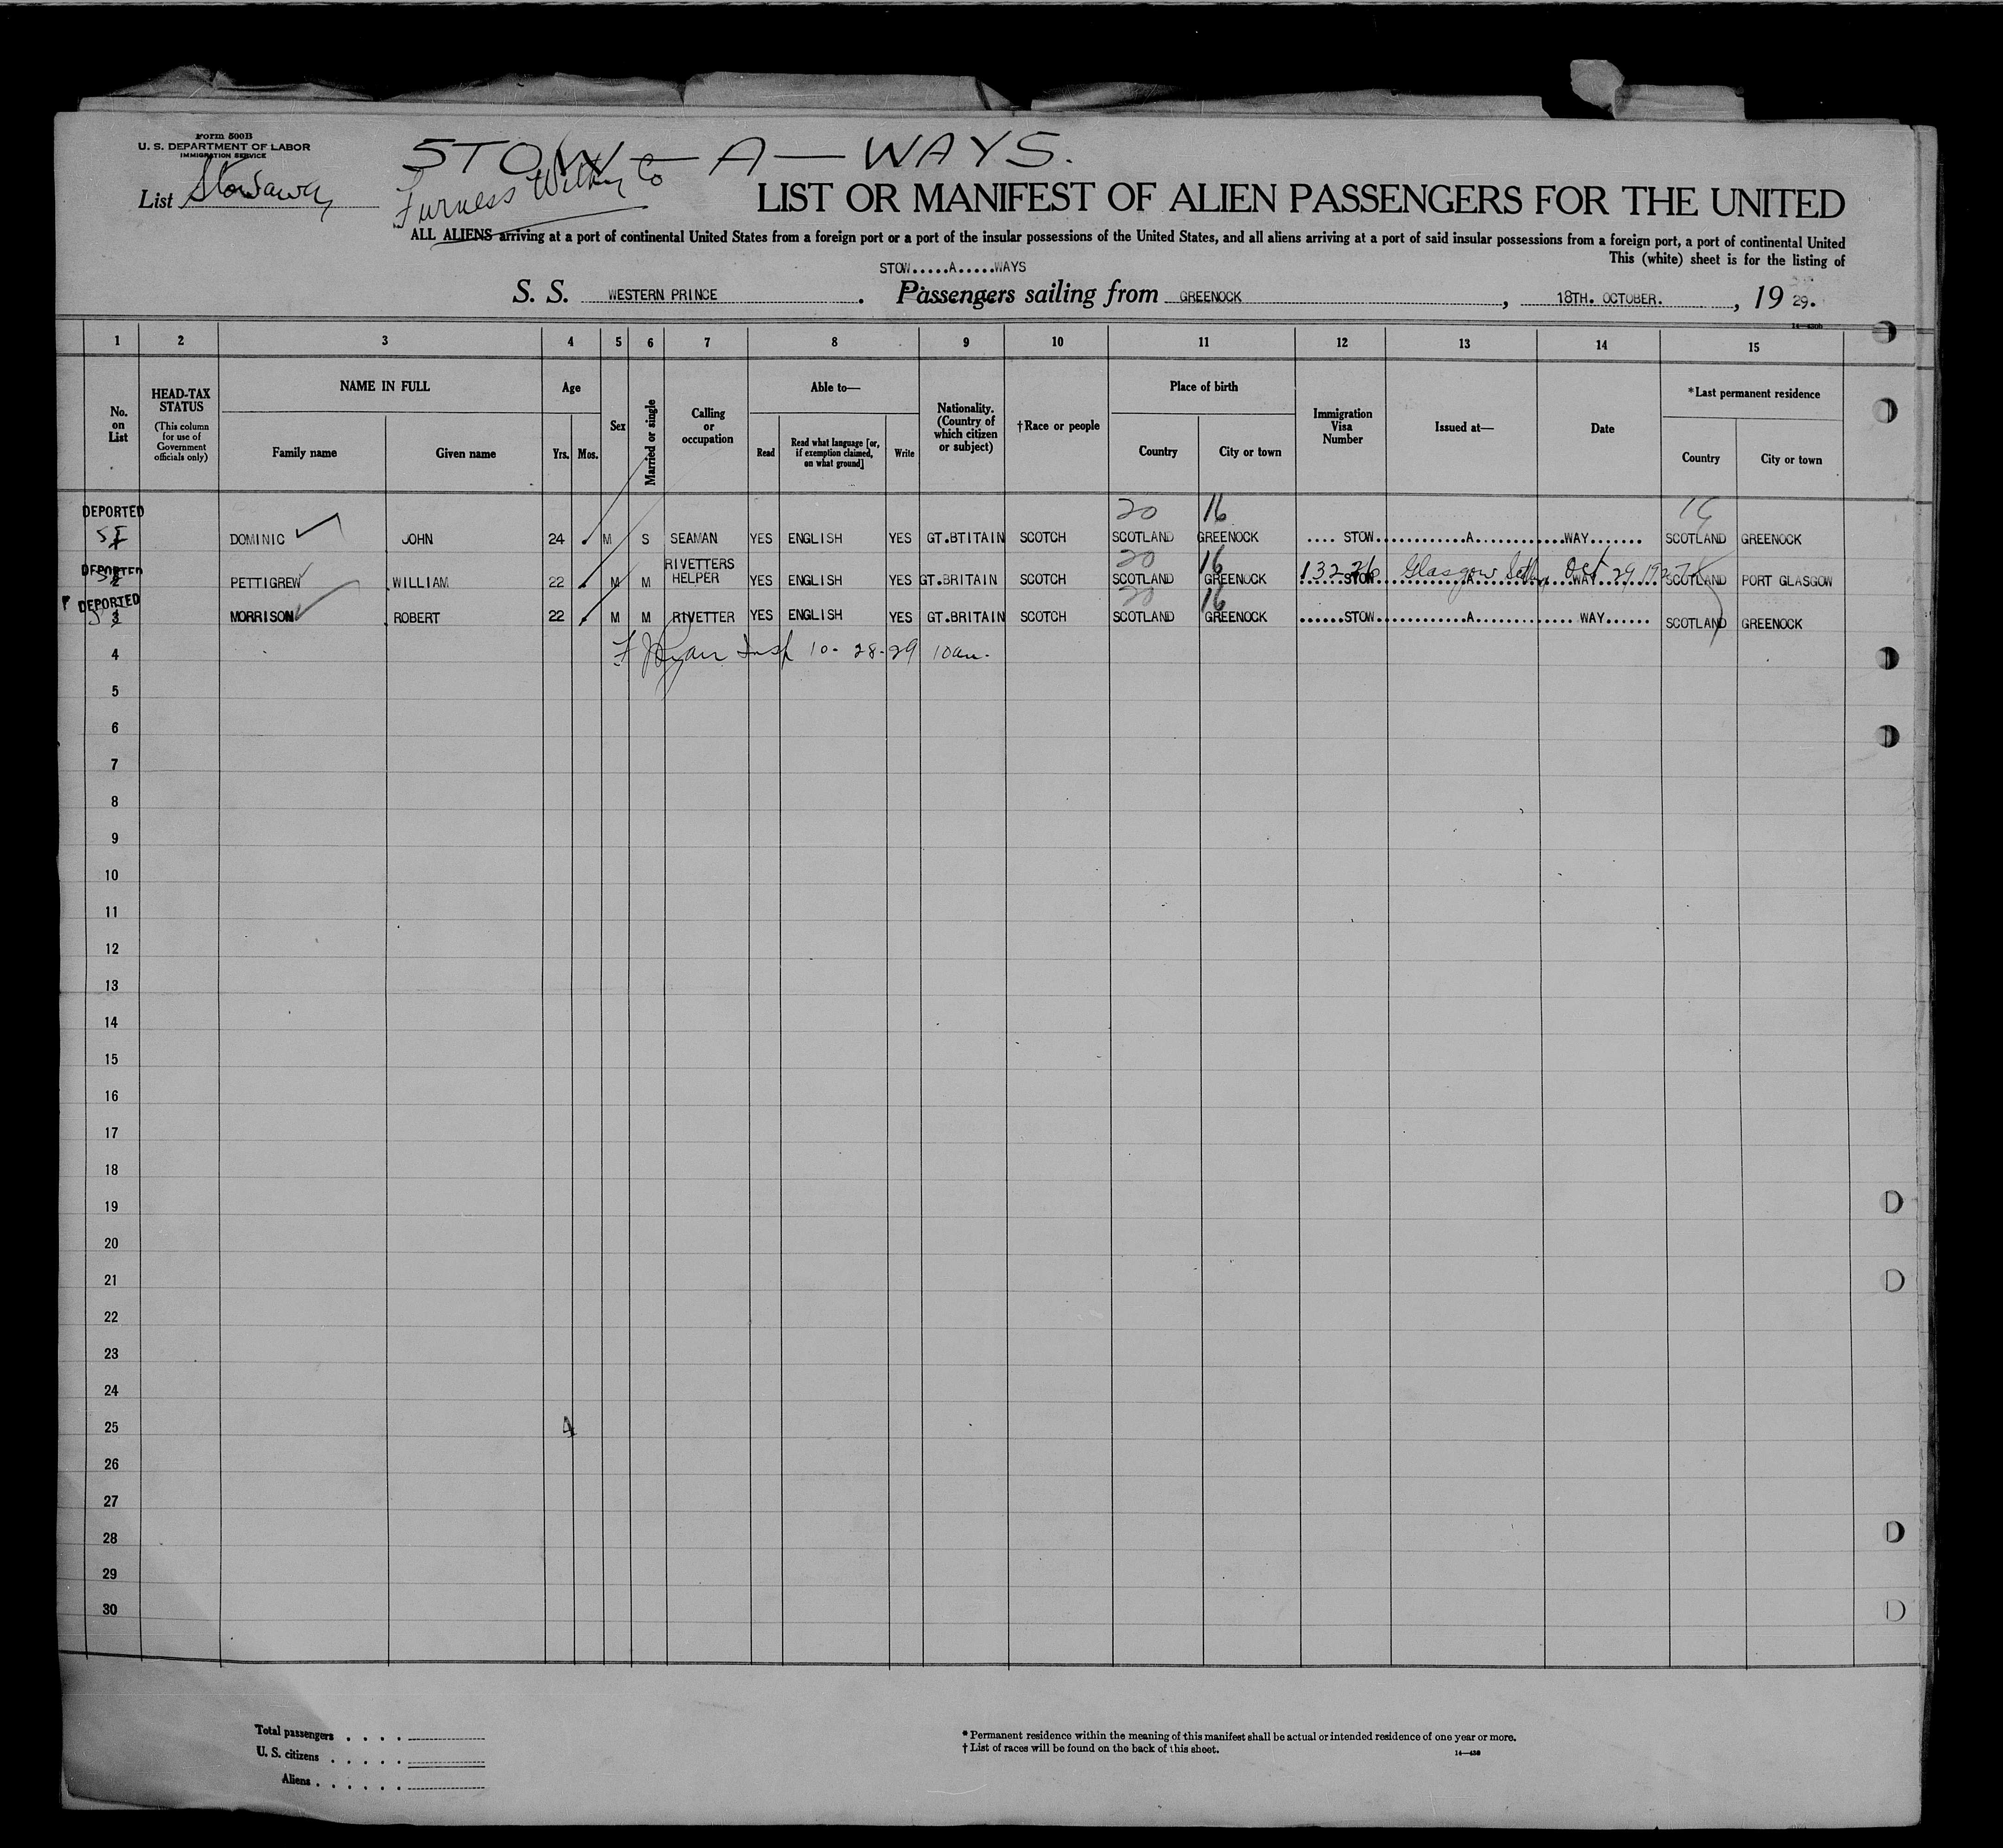 Form 500B
U. S. DEPARTMENT OF LABOR
IMMIGRATION SERVICE
STOW — A — WAYS.
List Stowaway
Furness Withy Co
LIST OR MANIFEST OF ALIEN PASSENGERS FOR THE UNITED
ALL ALIENS arriving at a port of continental United States from a foreign port or a port of the insular possessions of the United States, and all aliens arriving at a port of said insular possessions from a foreign port, a port of continental United
This (white) sheet is for the listing of
STOW.....A.....WAYS
S. S. WESTERN PRINCE. Passengers sailing from GREENOCK, 18TH. OCTOBER., 19 29.
1 2 3 4 5 6 7 8 9 10 11 12 13 14 15
No. on List
HEAD-TAX STATUS (This column for use of Government officials only)
NAME IN FULL Family name Given name
Age Yrs. Mos.
Sex
Married or single
Calling or occupation
Able to— Read Read what language [or, if exemption claimed, on what ground] Write
Nationality. (Country of which citizen or subject)
†Race or people
Place of birth Country City or town
Immigration Visa Number
Issued at—
Date
*Last permanent residence Country City or town
DEPORTED 20 16 16
1 DOMINIC JOHN 24 M S SEAMAN YES ENGLISH YES GT.BTITAIN SCOTCH SCOTLAND GREENOCK .... STOW............A............WAY....... SCOTLAND GREENOCK
DEPORTED 20 16 13226 Glasgow Oct 29, 1927
2 PETTIGREW WILLIAM 22 M M RIVETTERS HELPER YES ENGLISH YES GT.BRITAIN SCOTCH SCOTLAND GREENOCK ......STOW............A............WAY...... SCOTLAND PORT GLASGOW
P DEPORTED 20 16
3 MORRISON ROBERT 22 M M RIVETTER YES ENGLISH YES GT.BRITAIN SCOTCH SCOTLAND GREENOCK ......STOW............A............ WAY...... SCOTLAND GREENOCK
4 F J Ryan Insp 10-28-29 10am.
5
6
7
8
9
10
11
12
13
14
15
16
17
18
19
20
21
22
23
24
25 4
26
27
28
29
30
Total passengers . . . .
U. S. citizens . . . . .
Aliens . . . . . .
* Permanent residence within the meaning of this manifest shall be actual or intended residence of one year or more.
† List of races will be found on the back of this sheet.
14—430